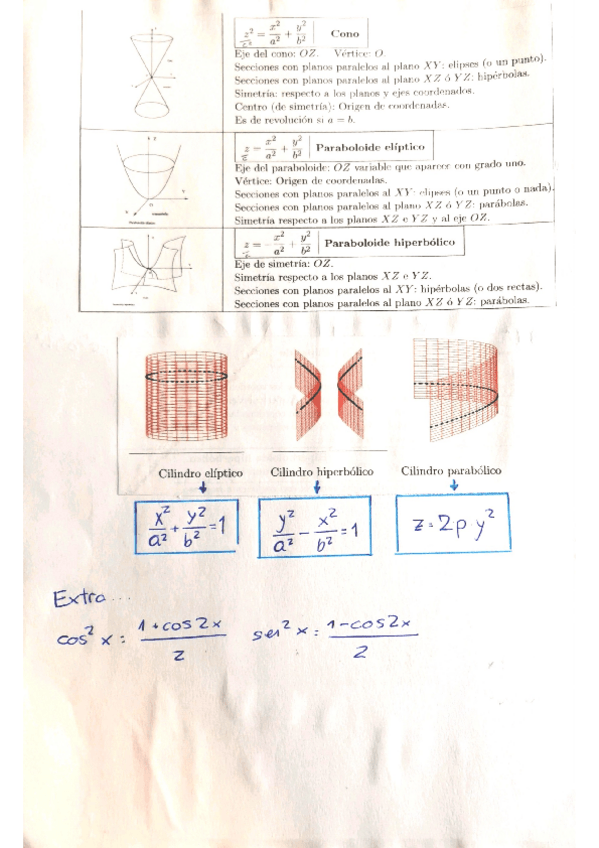 z² = x²/a² + y²/b² Cono
Eje del cono: OZ. Vértice: O.
Secciones con planos paralelos al plano XY: elipses (o un punto).
Secciones con planos paralelos al plano XZ ó YZ: hipérbolas.
Simetría: respecto a los planos y ejes coordenados.
Centro (de simetría): Origen de coordenadas.
Es de revolución si a = b.
z = x²/a² + y²/b² Paraboloide elíptico
Eje del paraboloide: OZ variable que aparece con grado uno.
Vértice: Origen de coordenadas.
Secciones con planos paralelos al XY: elipses (o un punto o nada).
Secciones con planos paralelos al plano XZ ó YZ: parábolas.
Simetría respecto a los planos XZ e YZ y al eje OZ.
z = -x²/a² + y²/b² Paraboloide hiperbólico
Eje de simetría: OZ.
Simetría respecto a los planos XZ e YZ.
Secciones con planos paralelos al XY: hipérbolas (o dos rectas).
Secciones con planos paralelos al plano XZ ó YZ: parábolas.
Cilindro elíptico Cilindro hiperbólico Cilindro parabólico
x²/a² + y²/b² = 1 y²/a² - x²/b² = 1 z = 2p y²
Extra...
cos² x = 1+cos2x/2 sen² x = 1-cos2x/2